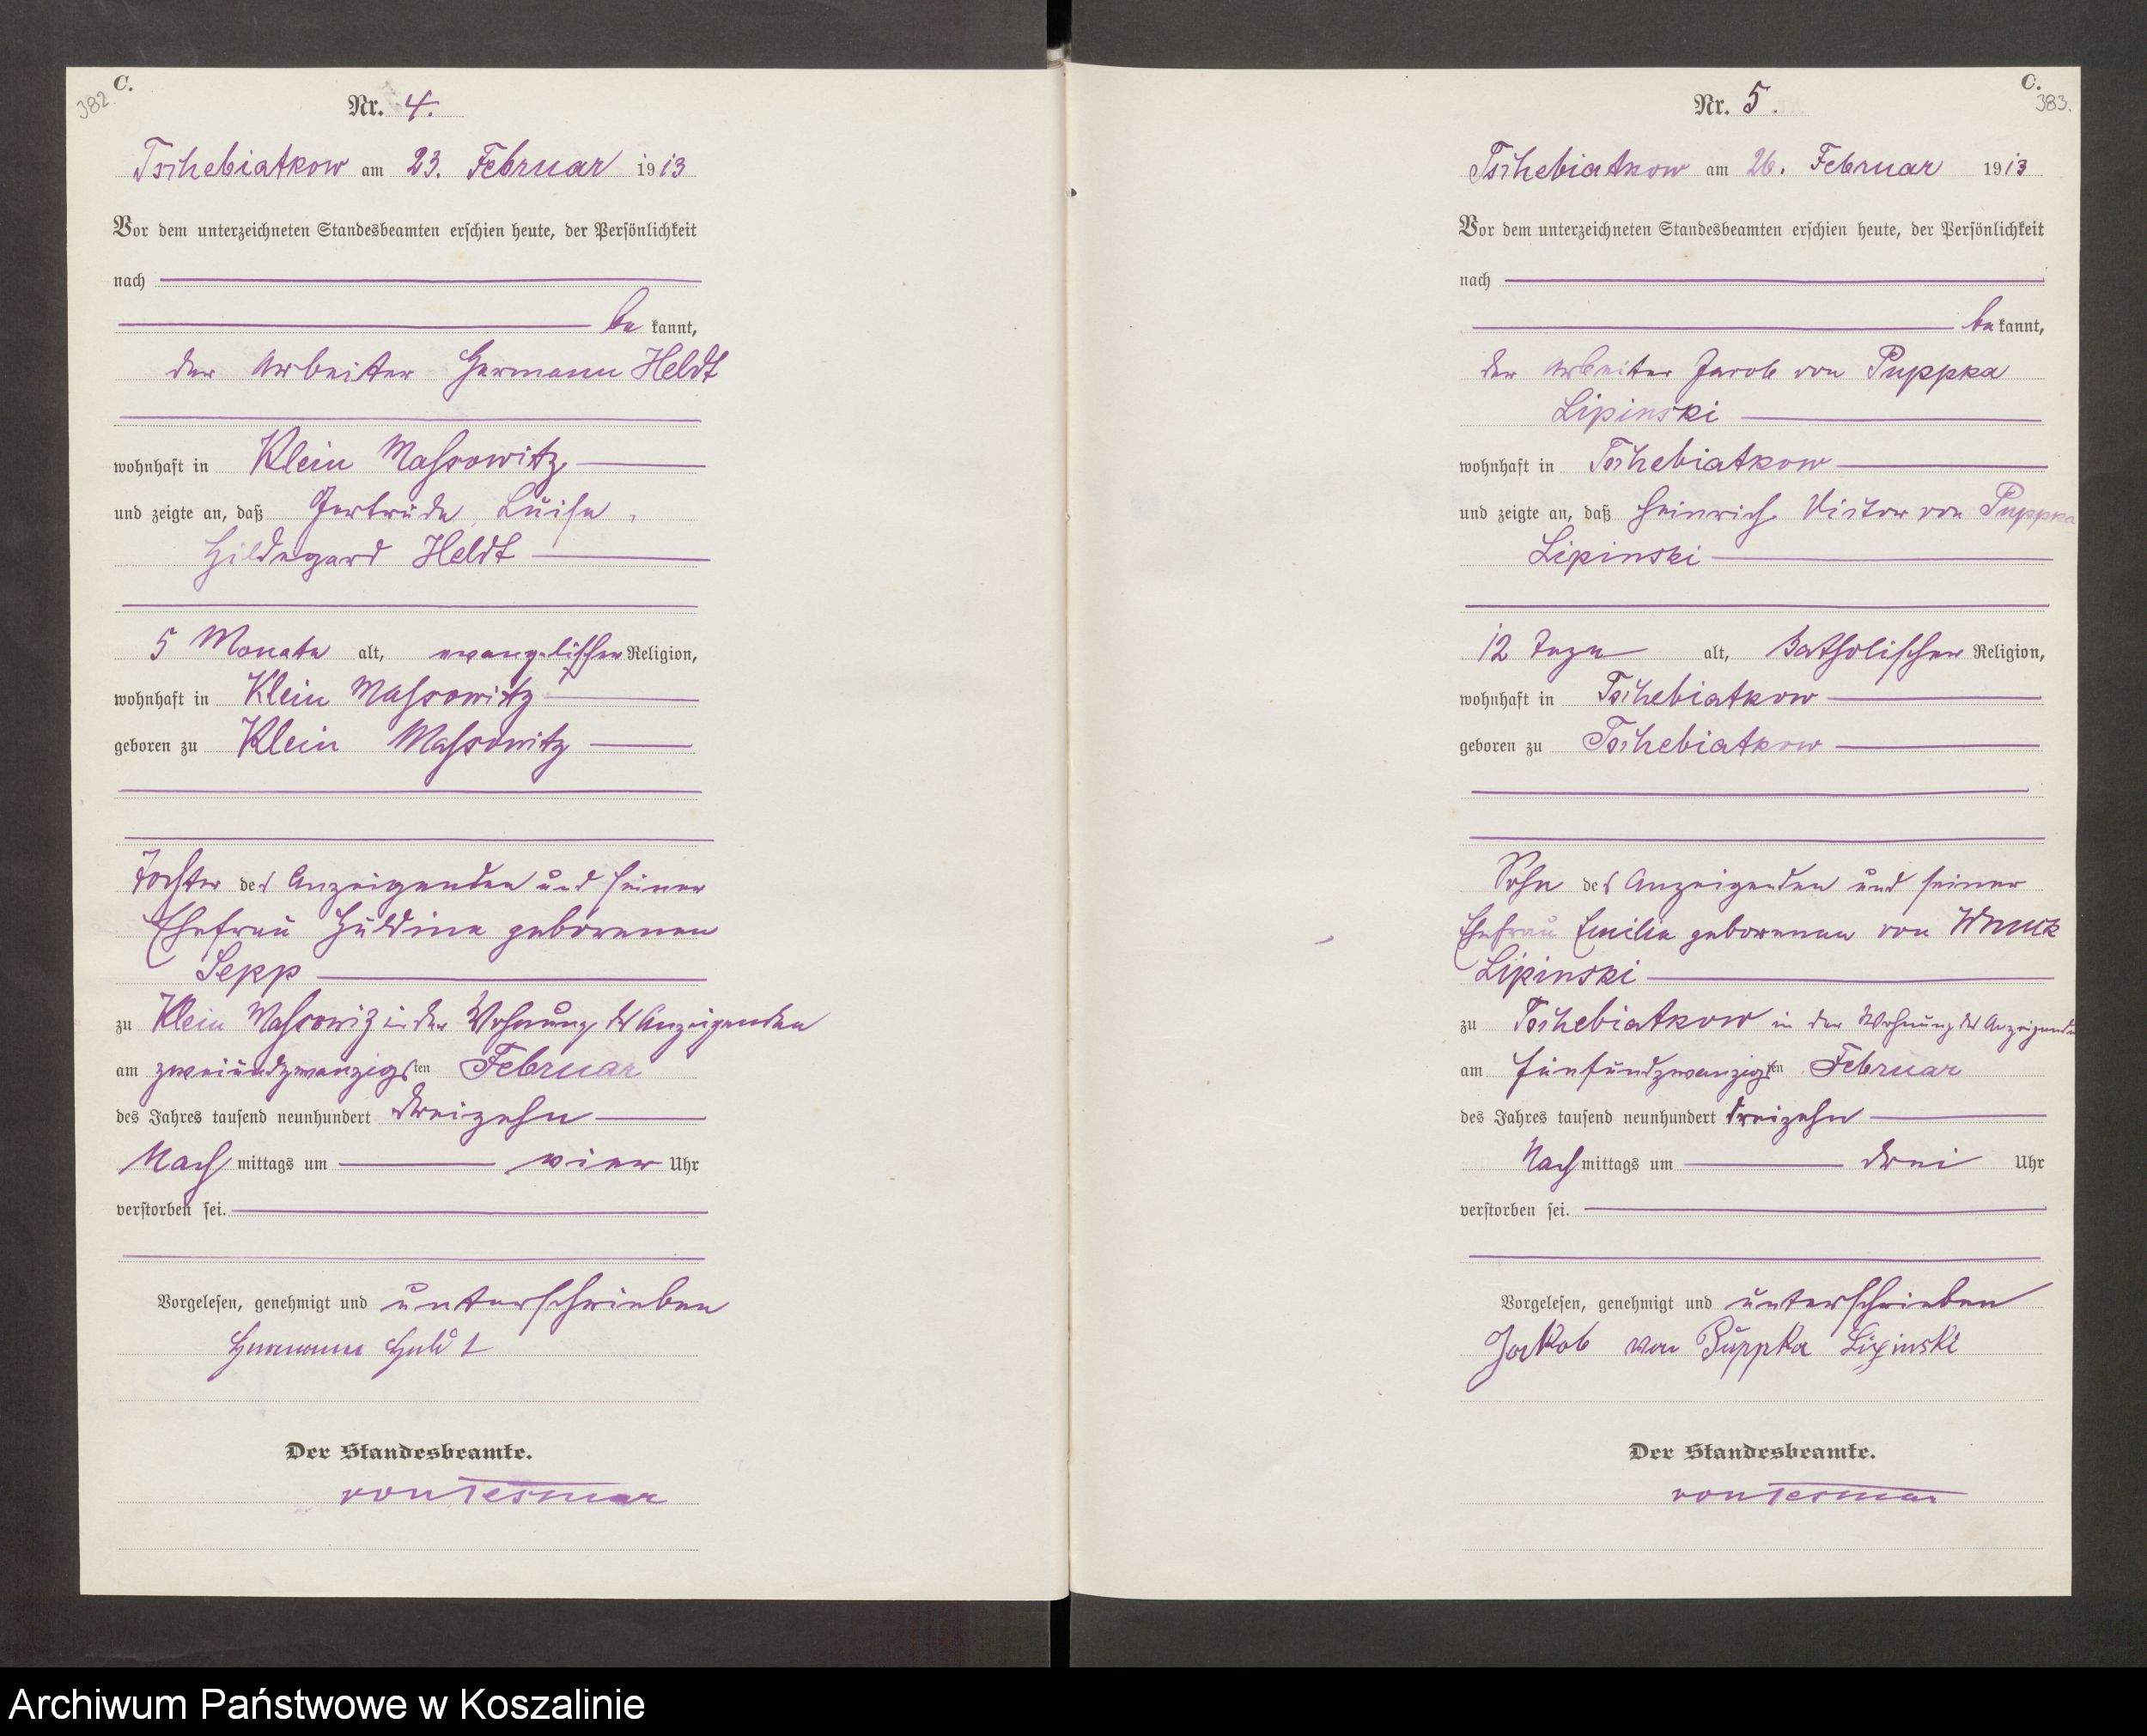 C.
382.
Nr. 4.
Tschebiatkow am 23. Februar 1913
Vor dem unterzeichneten Standesbeamten erschien heute, der Persönlichkeit
nach
be kannt,
der Arbeiter Hermann Heldt
wohnhaft in Klein Massowitz
und zeigte an, daß Gertrude Luise,
Hildegard Heldt
5 Monate alt, evangelischer Religion,
wohnhaft in Klein Massowitz
geboren zu Klein Massowitz
Tochter des Anzeigenden und seiner
Ehefrau Huldine geborenen
Sepp
zu Klein Massowiz in der Wohnung des Anzeigenden
am zweiundzwanzigsten Februar
des Jahres tausend neunhundert dreizehn
Nach mittags um vier Uhr
verstorben sei.
Vorgelesen, genehmigt und unterschrieben
Hermann Heldt
Der Standesbeamte.
von Tesmar
C.
383.
Nr. 5.
Tschebiatkow am 26. Februar 1913
Vor dem unterzeichneten Standesbeamten erschien heute, der Persönlichkeit
nach
be kannt,
der Arbeiter Jacob von Puppka
Lipinski
wohnhaft in Tschebiatkow
und zeigte an, daß Heinrich Victor von Puppka
Lipinski
12 Tage alt, katholischer Religion,
wohnhaft in Tschebiatkow
geboren zu Tschebiatkow
Sohn des Anzeigenden und seiner
Ehefrau Emilie geborenen von Wnuck
Lipinski
zu Tschebiatkow in der Wohnung des Anzeigenden
am fünfundzwanzigsten Februar
des Jahres tausend neunhundert dreizehn
Nach mittags um drei Uhr
verstorben sei.
Vorgelesen, genehmigt und unterschrieben
Jakob von Puppka Lipinski
Der Standesbeamte.
von Tesmar
Archiwum Państwowe w Koszalinie